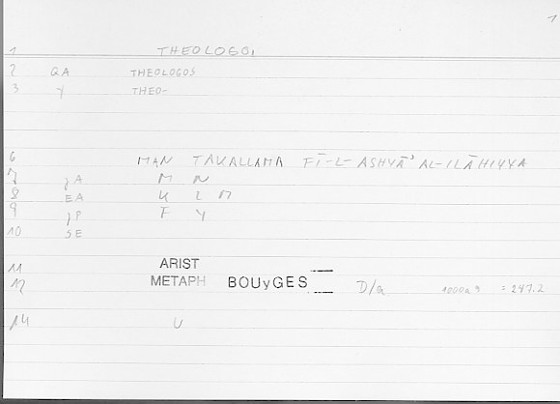 1
1 THEOLOGOI
2 QA THEOLOGOS
3 Y THEO-
6 MAN TAKALLAMA FĪ-L-ASHYĀʾ AL-ILĀHIYYA
7 JA M N
8 EA K L M
9 JP F Y
10 SE
11 ARIST
12 METAPH BOUyGES D/G 1000a9 = 247.2
14 U